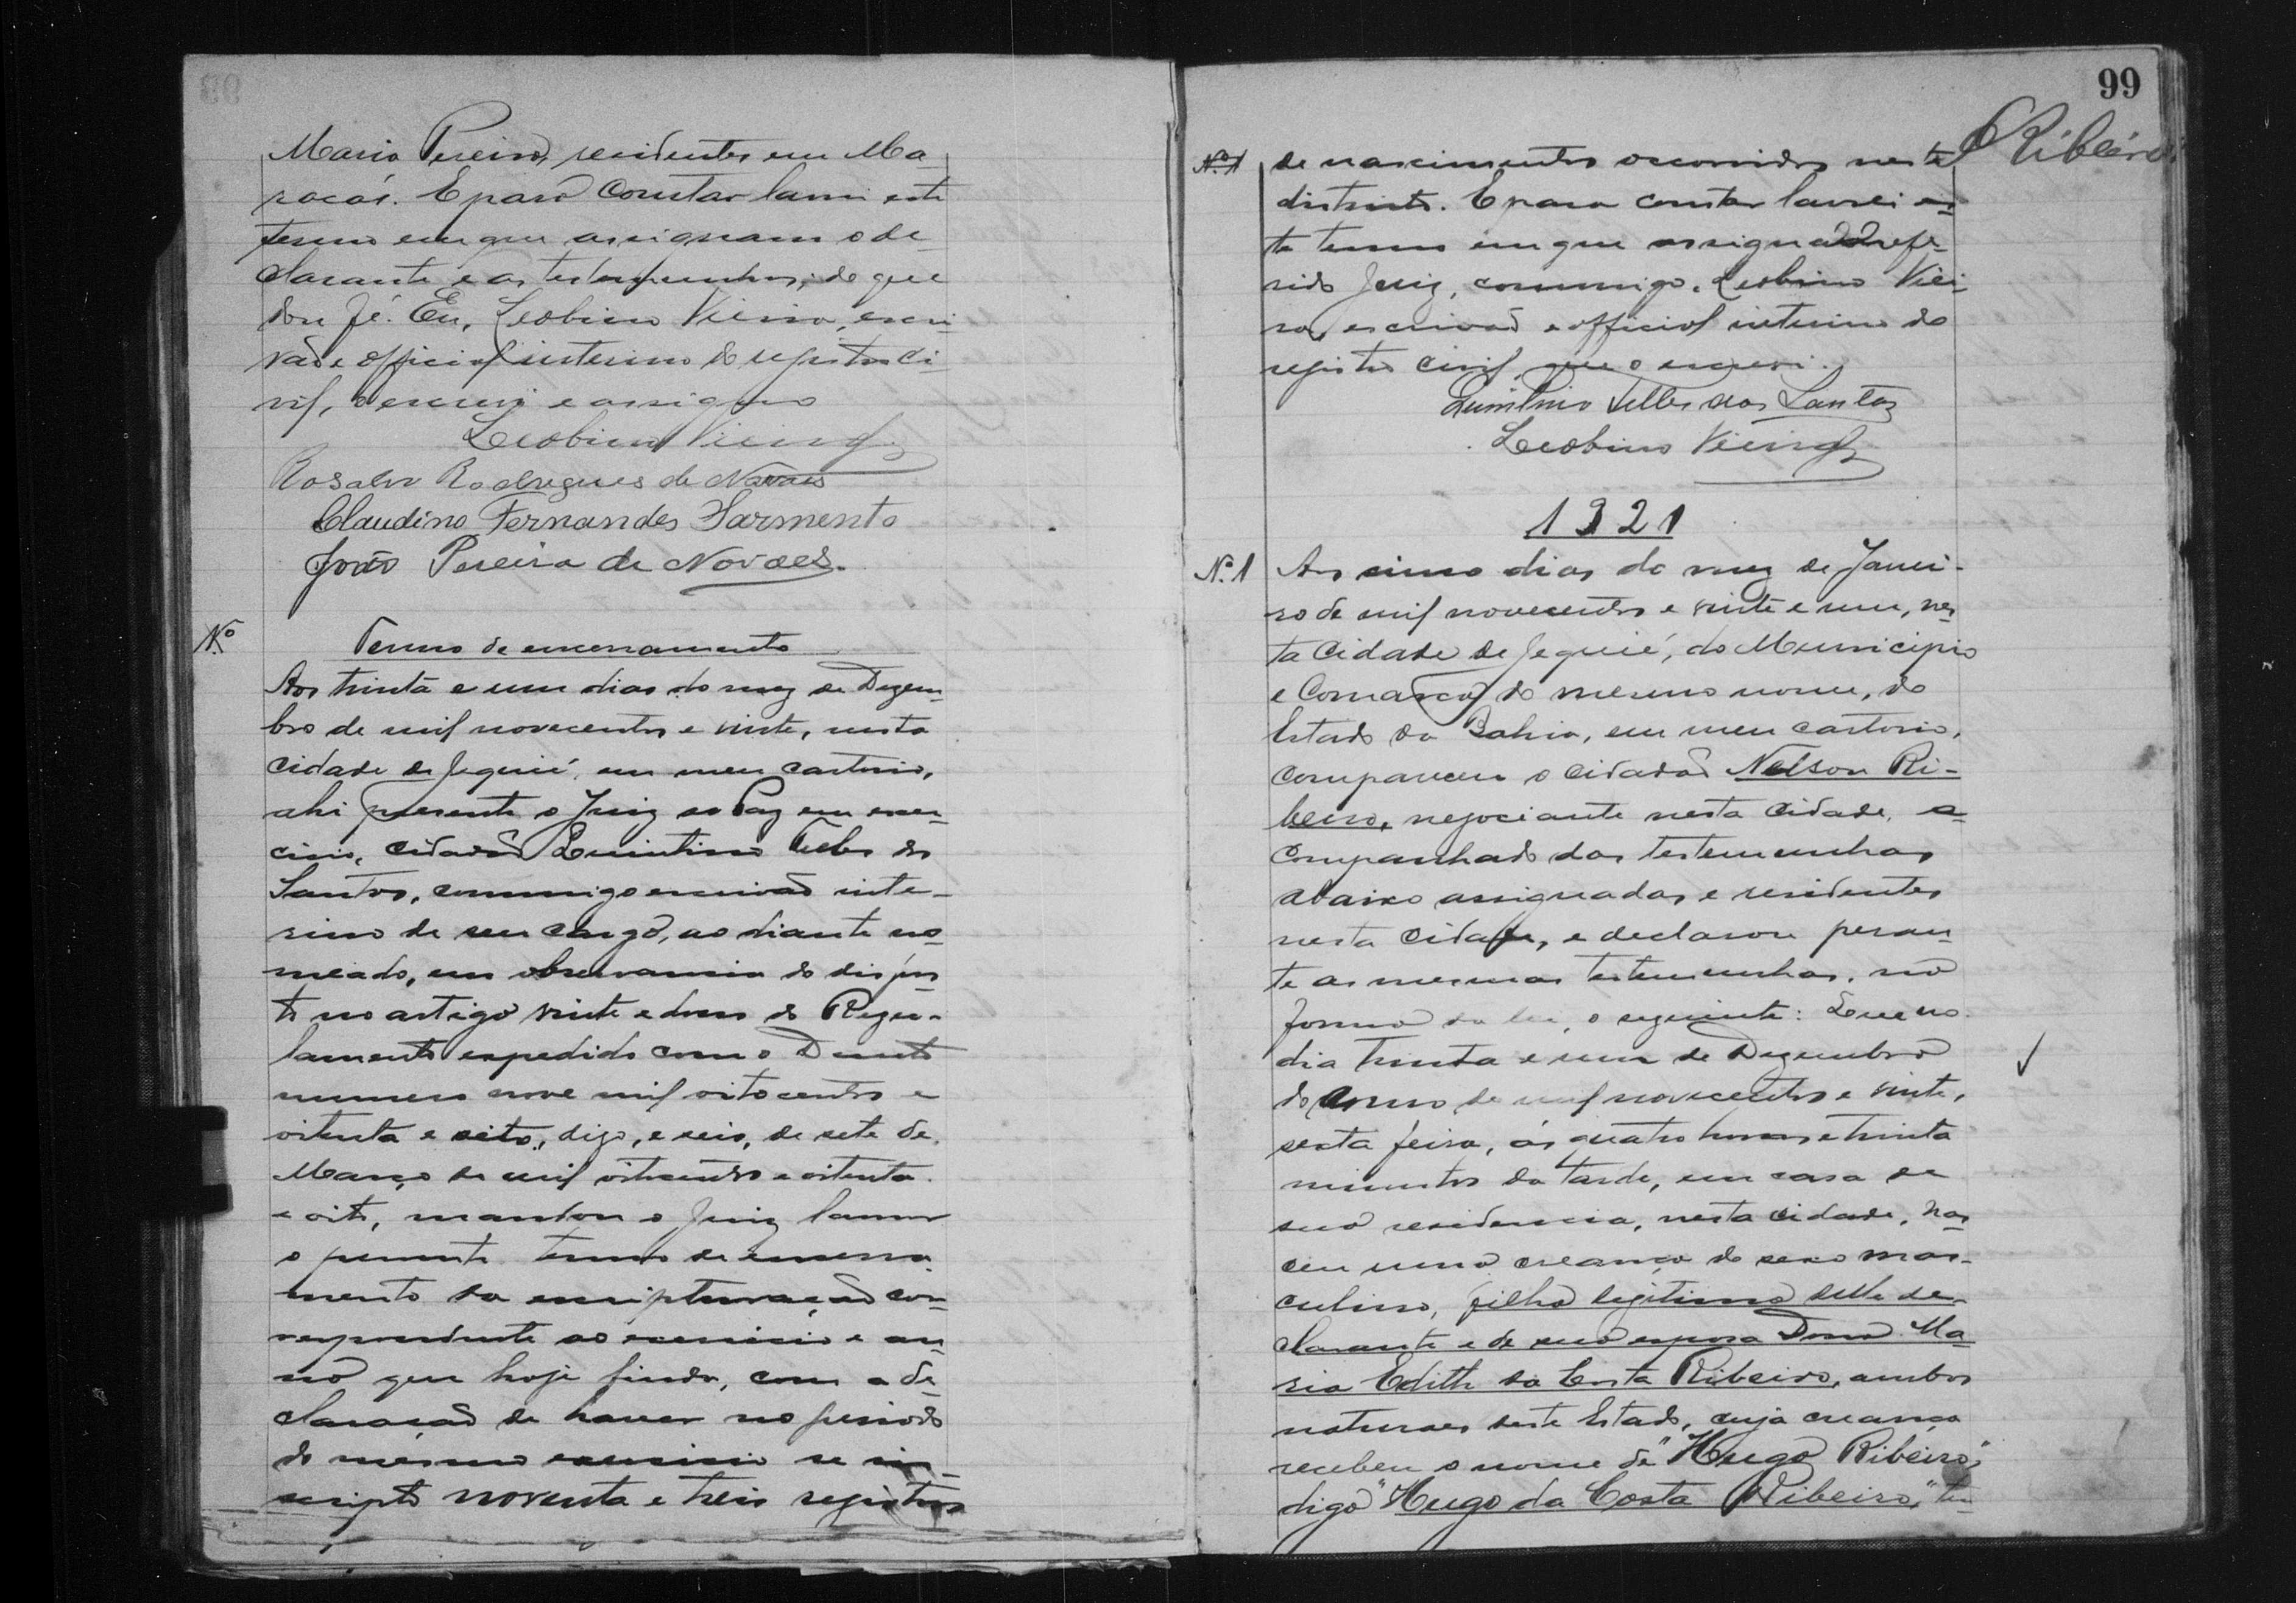 Maria Pereira, residentes em Ma-
racás. E para constar lavrei este
termo em que assignam o de-
clarante e as testemunhas, do que
dou fé. Eu, Leobino Vieira, escri-
vão e official interino do registro ci-
vil, o escrevi e assigno
Leobino Vieira
Rosalvo Rodrigues de Novaes
Claudino Fernandes Sarmento
João Pereira de Novaes.
Nº
Termo de encerramento
Aos trinta e um dias do mez de Dezem-
bro de mil novecentos e vinte, nesta
cidade de Jequié, em meu cartorio,
ahi presente o Juiz de Paz em exer-
cicio, cidadão Quintino Telles dos
Santos, commigo escrivão inte-
rino de seu cargo, ao diante no-
meado, em observancia do dispos-
to no artigo vinte e dous do Regu-
lamento expedido com o Decreto
numero nove mil oitocentos e
oitenta e oito, digo, e seis, de sete de
Março de mil oitocentos e oitenta
e oito, mandou o Juiz lavrar
o presente termo de encerra-
mento da escripturação cor-
respondente ao exercicio e an-
no que hoje finda, com a de-
claração de haver no periodo
do mesmo exercicio se ins-
cripto noventa e treis registros
99
CRibeiro
Nº 1
de nascimentos occorridos neste
districto. E para constar lavrei es-
te termo em que assigna o refe-
rido Juiz, commigo, Leobino Viei-
ra, escrivão e official interino do
registro civil, que o escrevi.
Quintino Telles dos Santos
Leobino Vieira
1921
Nº 1
Aos cinco dias do mez de Janei-
ro de mil novecentos e vinte e um, nes-
ta Cidade de Jequié, do Municipio
e Comarca do mesmo nome, do
Estado da Bahia, em meu cartorio,
compareceu o cidadão Nelson Ri-
beiro, negociante nesta cidade, a-
companhado das testemunhas
abaixo assignadas e residentes
nesta cidade, e declarou peran-
te as mesmas testemunhas, na
forma da lei, o seguinte: Que no
dia trinta e um de Dezembro
do anno de mil novecentos e vinte,
sexta feira, ás quatro horas e trinta
minutos da tarde, em casa de
sua residencia, nesta cidade, nas-
ceu uma creança do sexo mas-
culino, filho legitimo delle de-
clarante e de sua esposa Dona Ma-
ria Edith da Costa Ribeiro, ambos
naturaes deste Estado, cuja creança
recebeu o nome de "Hugo Ribeiro,"
digo "Hugo da Costa Ribeiro," ten-